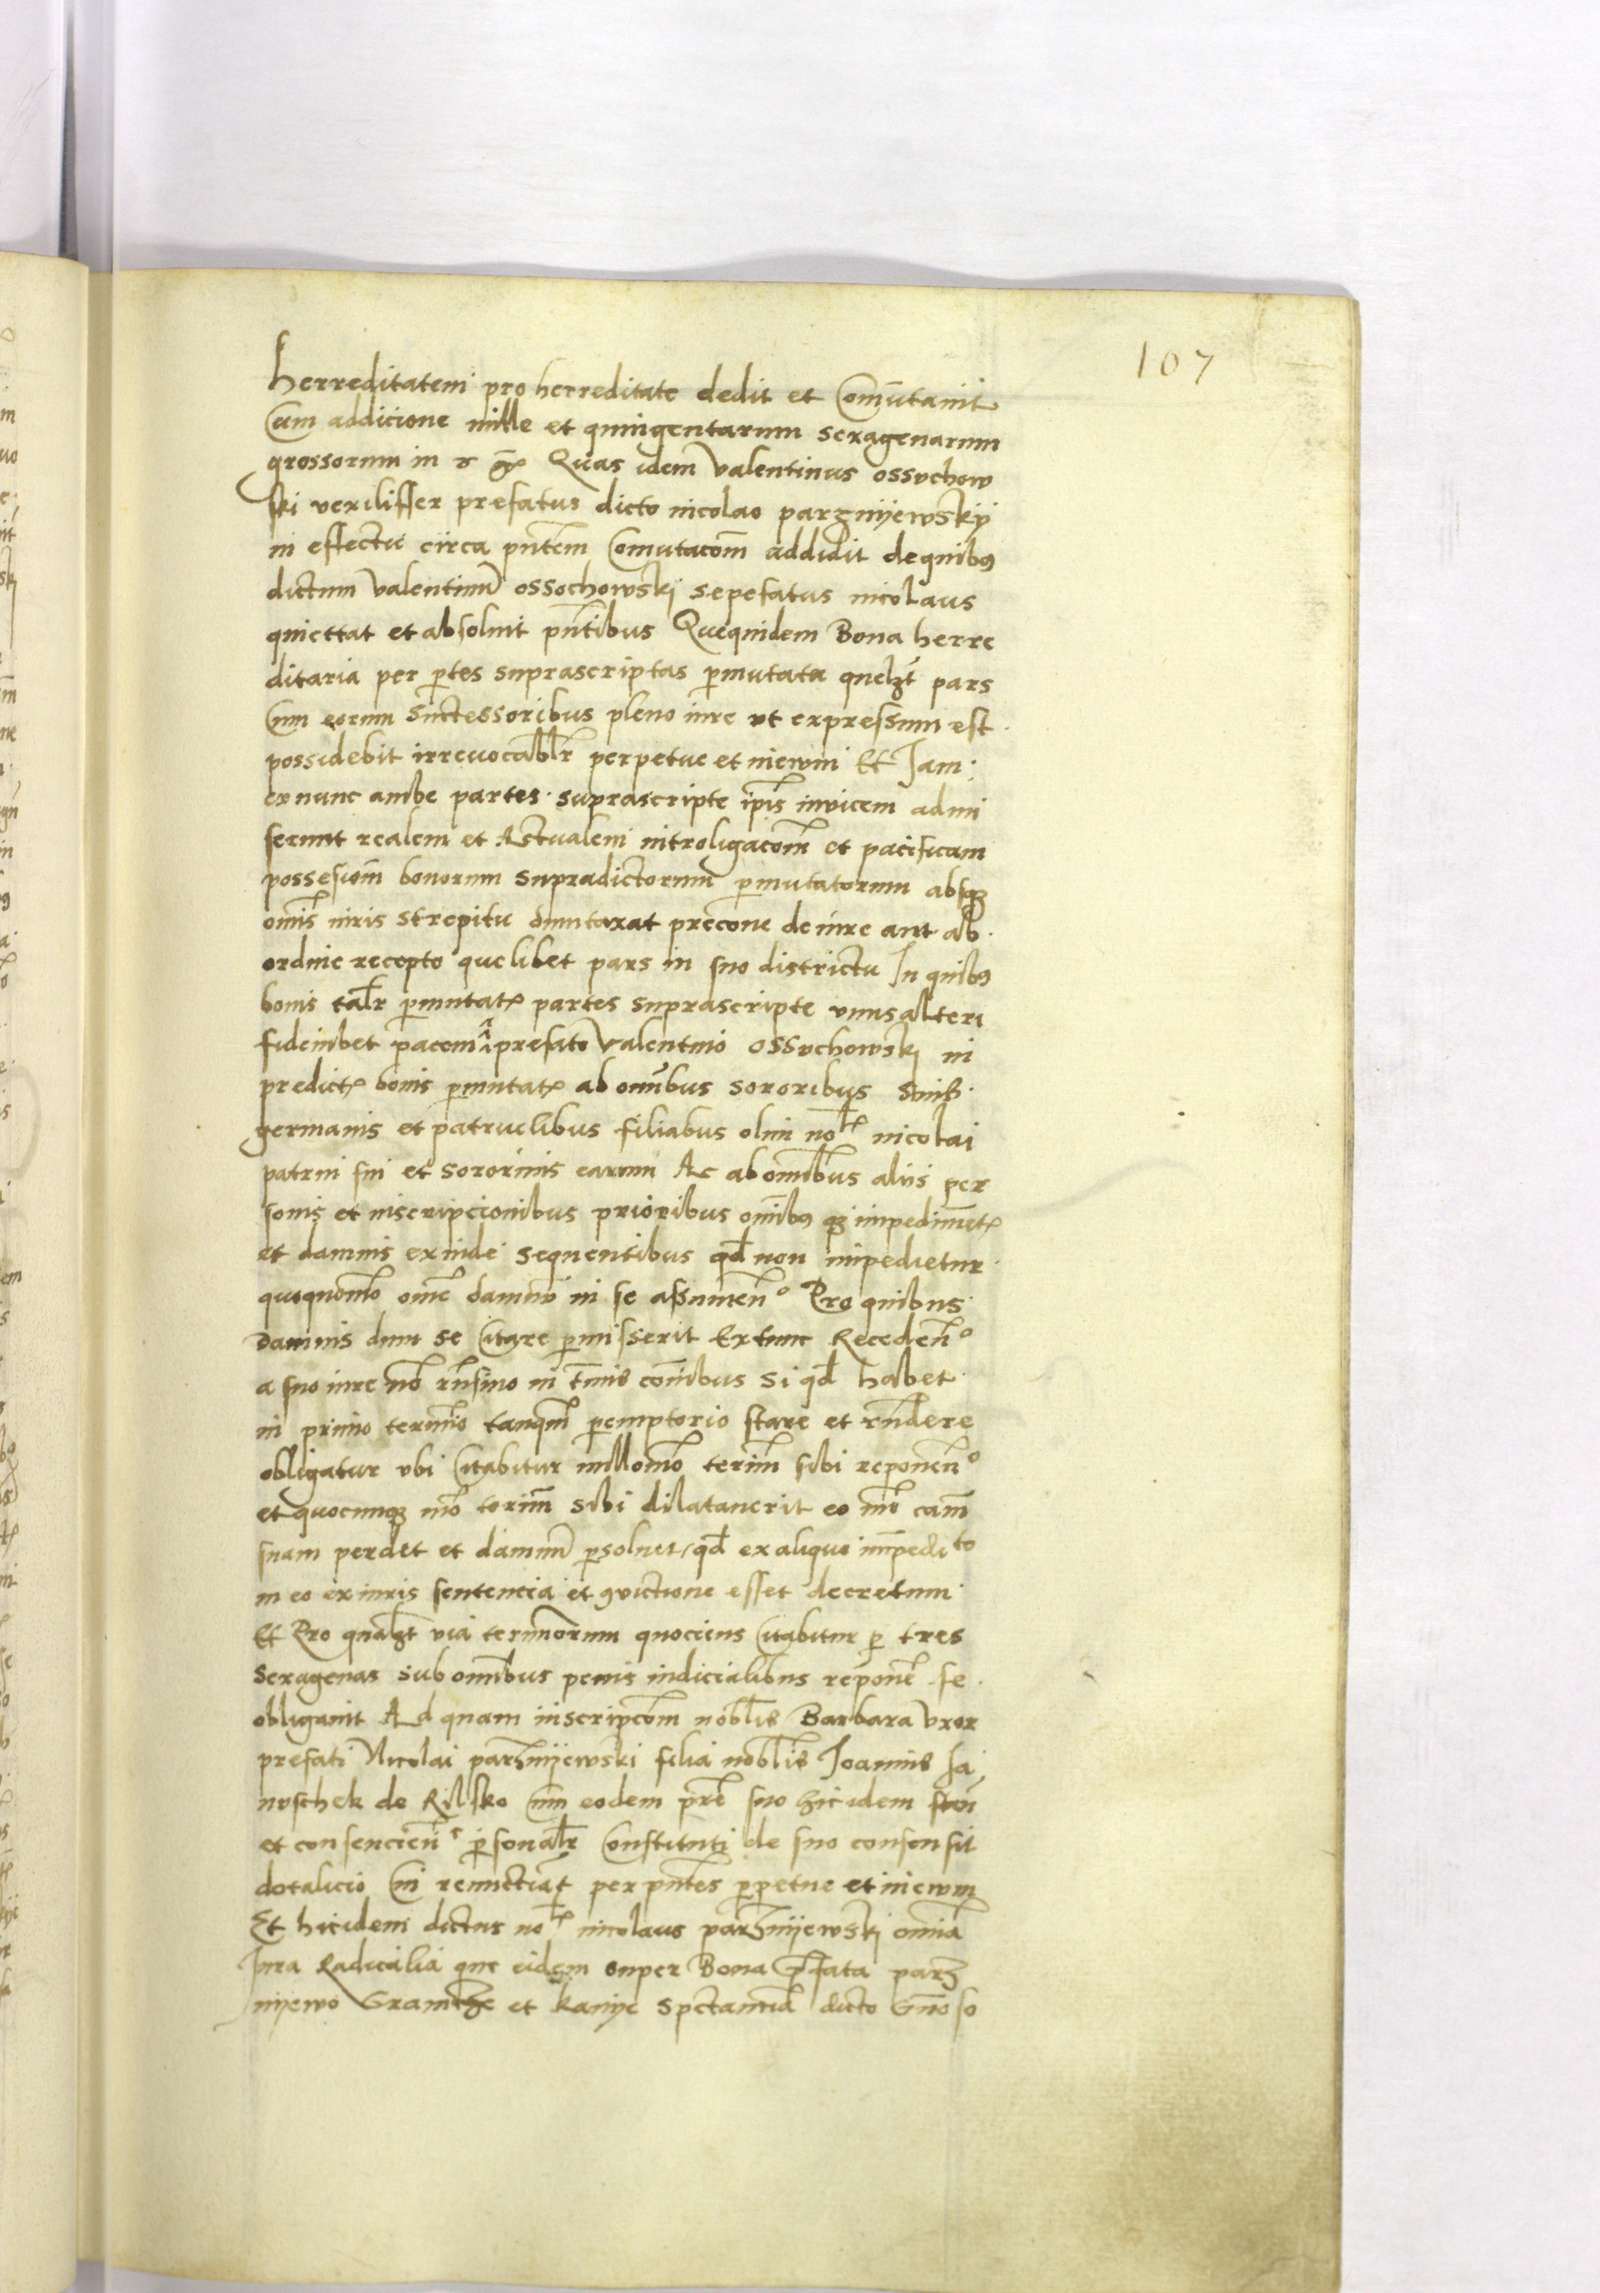 107
herreditatem pro herreditate dedit et Com̄utauit
Cum addicione mille et quingentarum sexagenarum
grossorum in Quas idem Valentinus ossuchow
ski vexillifer prefatus dicto nicolao parznijewskij
in effectu circa pn̄tem Comutacōm addidit de quibus
dictum Valentinū ossochowskj sepefatus nicolaus
quiettat et absoluit pn̄tibus Quequidem Bona herre
ditaria per ꝑtes suprascriptas ꝑmutata quelꝫt pars
Cum eorum Suctessoribus pleno iure vt expressum est
possidebit irreuocabłr perpetue et inewm Et Jam
exnunc ambe partes suprascripte ip̄is inuicem admi
serunt realem et Actualem introligacōm et pacificam
possesiōm bonorum supradictorum ꝑmutatorum absqꝫ
om̄is iuris strepitu dumtaxat precone de iure aut ab
ordine recepto quelibet pars in suo districtu In quibus
bonis talr ꝑmutatꝭ partes suprascripte vnus alteri
fideiubet pacem prefato Valentino ossuchowskj in
predictꝭ bonis ꝑmutatꝭ ab omībus sororibus Suis
germanis et patruelibus filiabus olim noᵇˡ nicolai
patrui sui et sororinis earum Ac ab omībus aliis per
sonis et inscripcionibus prioribus omībus qꝫ impedimētꝭ
et damnis exinde sequentibus qd non impedietur
quoquomō om̄e damnū in se assumen̄° Pro quibus
Damnis dum se Citare ꝑmisserit Extunc Receden̄°
a suo iure in Tm̄is com̄ibus Si qd habet
in primo termīo tanqm̄ ꝑemptorio stare et rn̄dere
obligatur vbi Citabitur nullomō termī sibi reponen̄°
et quocumqꝫ mō termī Sibi dilatauerit eo mō cam̄
suam perdet et damnū ꝑsoluet qd ex aliquo impedito
in eo ex iuris sentencia et ꝯuictione esset decretum
Et Pro qualꝫt via terminorum quociens Citabitur ꝑ tres
Sexagenas Sub omībus penis iudicialibus reponēr se
obligauit Ad quam inscripcōm nobłis Barbara vxor
prefati Nicolai parznijewski filia nobłis Joannis Ja
nuschek de Rilsko Cum eodem pr̄e suo hic idem stan̄
et consencien̄ ꝑsonalr Constituti de suo consensit
dotalicio Cui renuctiat per pn̄tes ꝑpetue et inewm
Et hicidem dictus noᵇˡ nicolaus parznijewskj om̄ia
Jura Radicalia que eidem super Bona p̄fata parz
nijewo Gramtze et kanije Spctancia dicto Gn̄oso